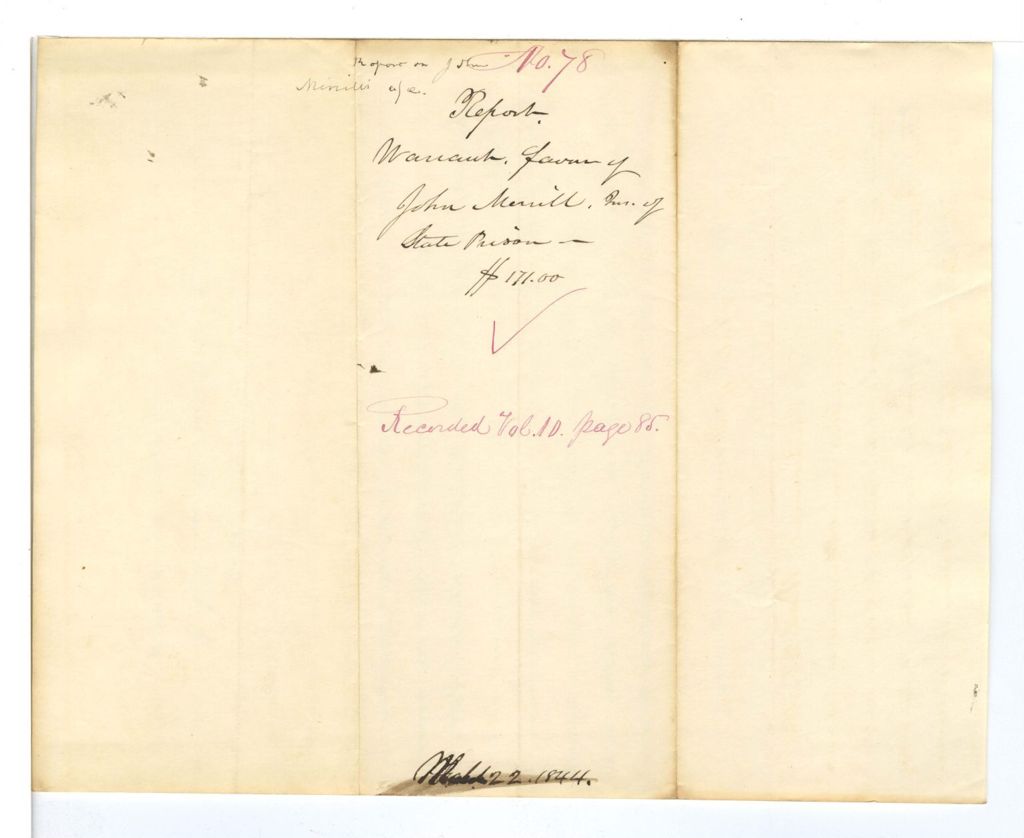 No. 78
Report on John
Merrill's a/c.
Report.
Warrant. favour of
John Merrill. Ins. of
State Prison —
$171.00
Recorded Vol. 10. page 85.
22. 1844.